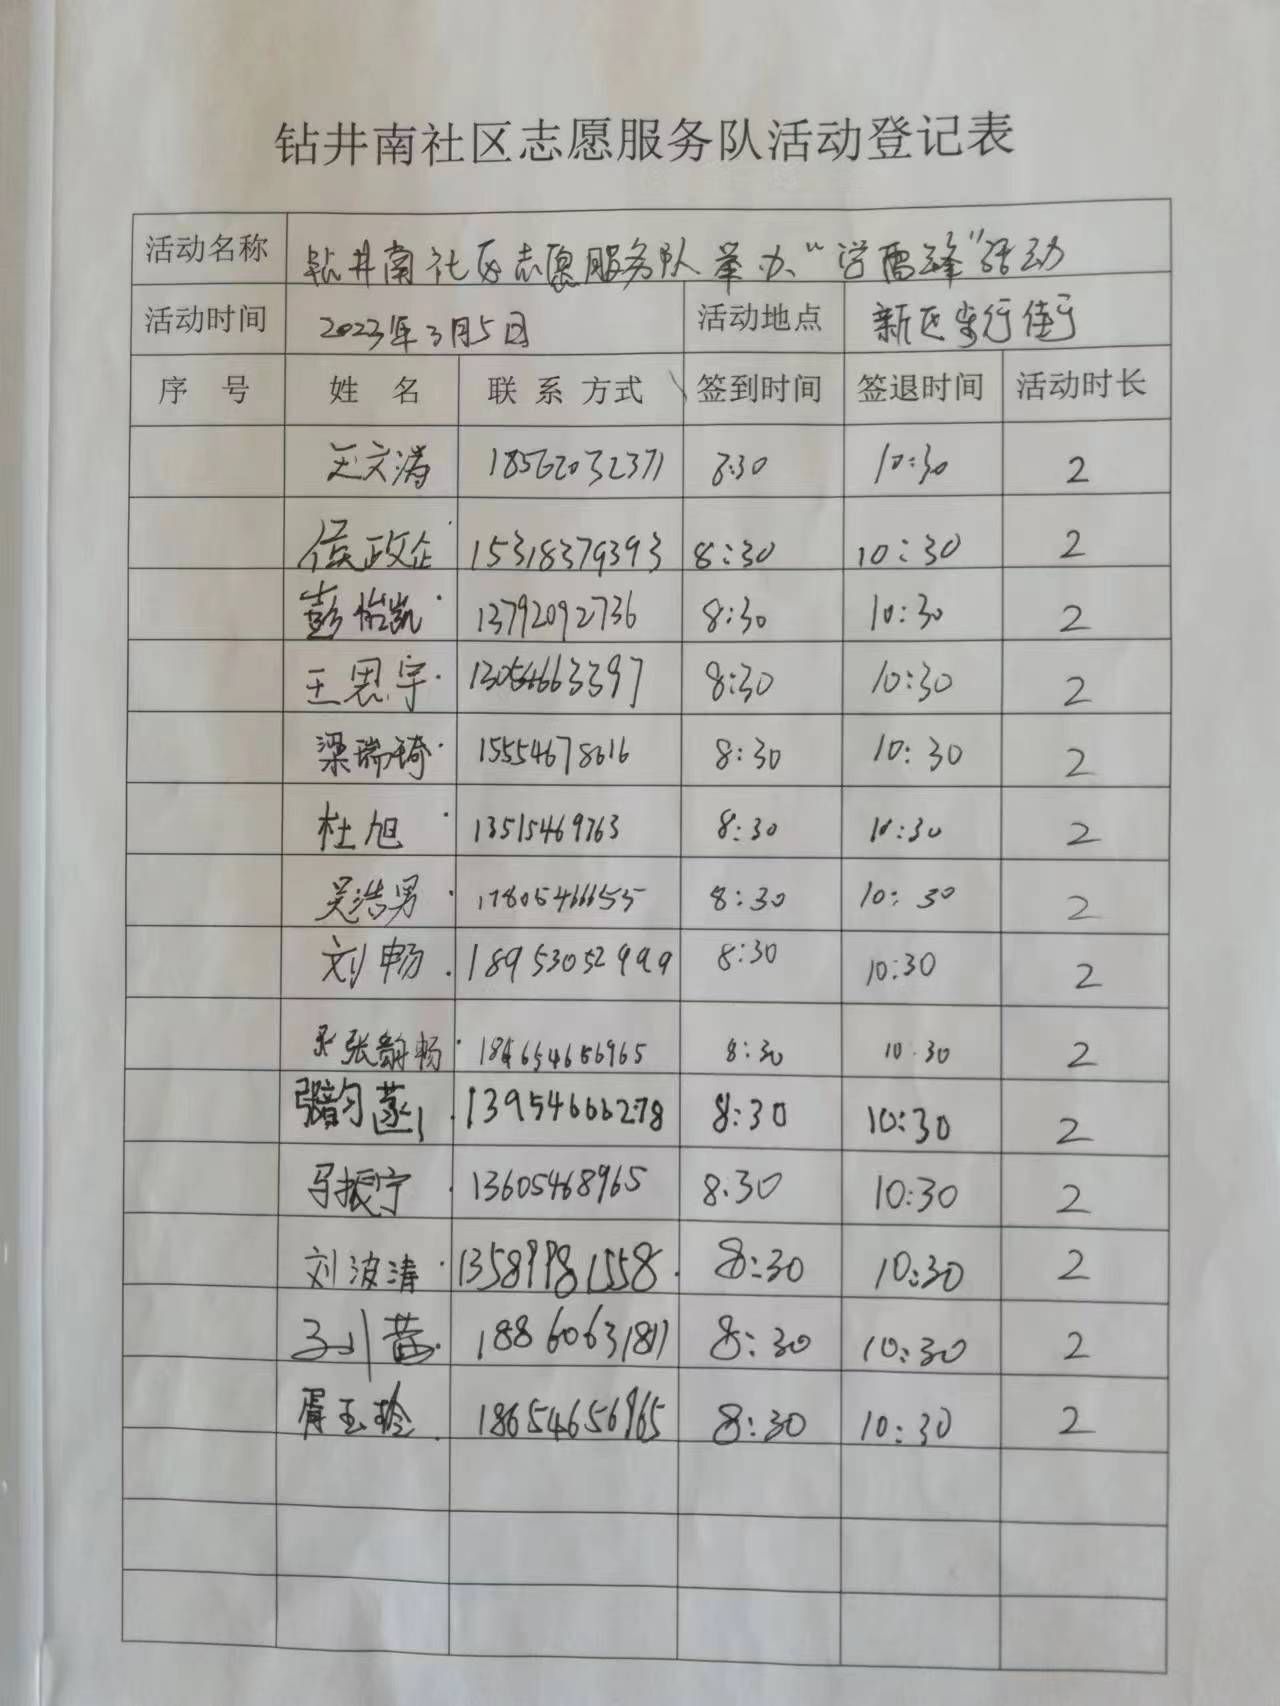 钻井南社区志愿服务队活动登记表
活动名称 钻井南社区志愿服务队举办“学雷锋”活动
活动时间 2023年3月5日 活动地点 新区步行街
序 号 姓 名 联 系 方式 签到时间 签退时间 活动时长
王文涛 18562032371 8:30 10:30 2
侯政企 15318379393 8:30 10:30 2
彭怡凯 13792092736 8:30 10:30 2
王思宇 13054663397 8:30 10:30 2
梁瑞琦 15554678616 8:30 10:30 2
杜旭 13515469763 8:30 10:30 2
吴浩男 17805466655 8:30 10:30 2
刘畅 18953052999 8:30 10:30 2
张韵畅 18654656965 8:30 10:30 2
13954666278 8:30 10:30 2
马振宁 13605468965 8:30 10:30 2
刘波涛 13589981558 8:30 10:30 2
18860631811 8:30 10:30 2
胥玉玲 18654656965 8:30 10:30 2